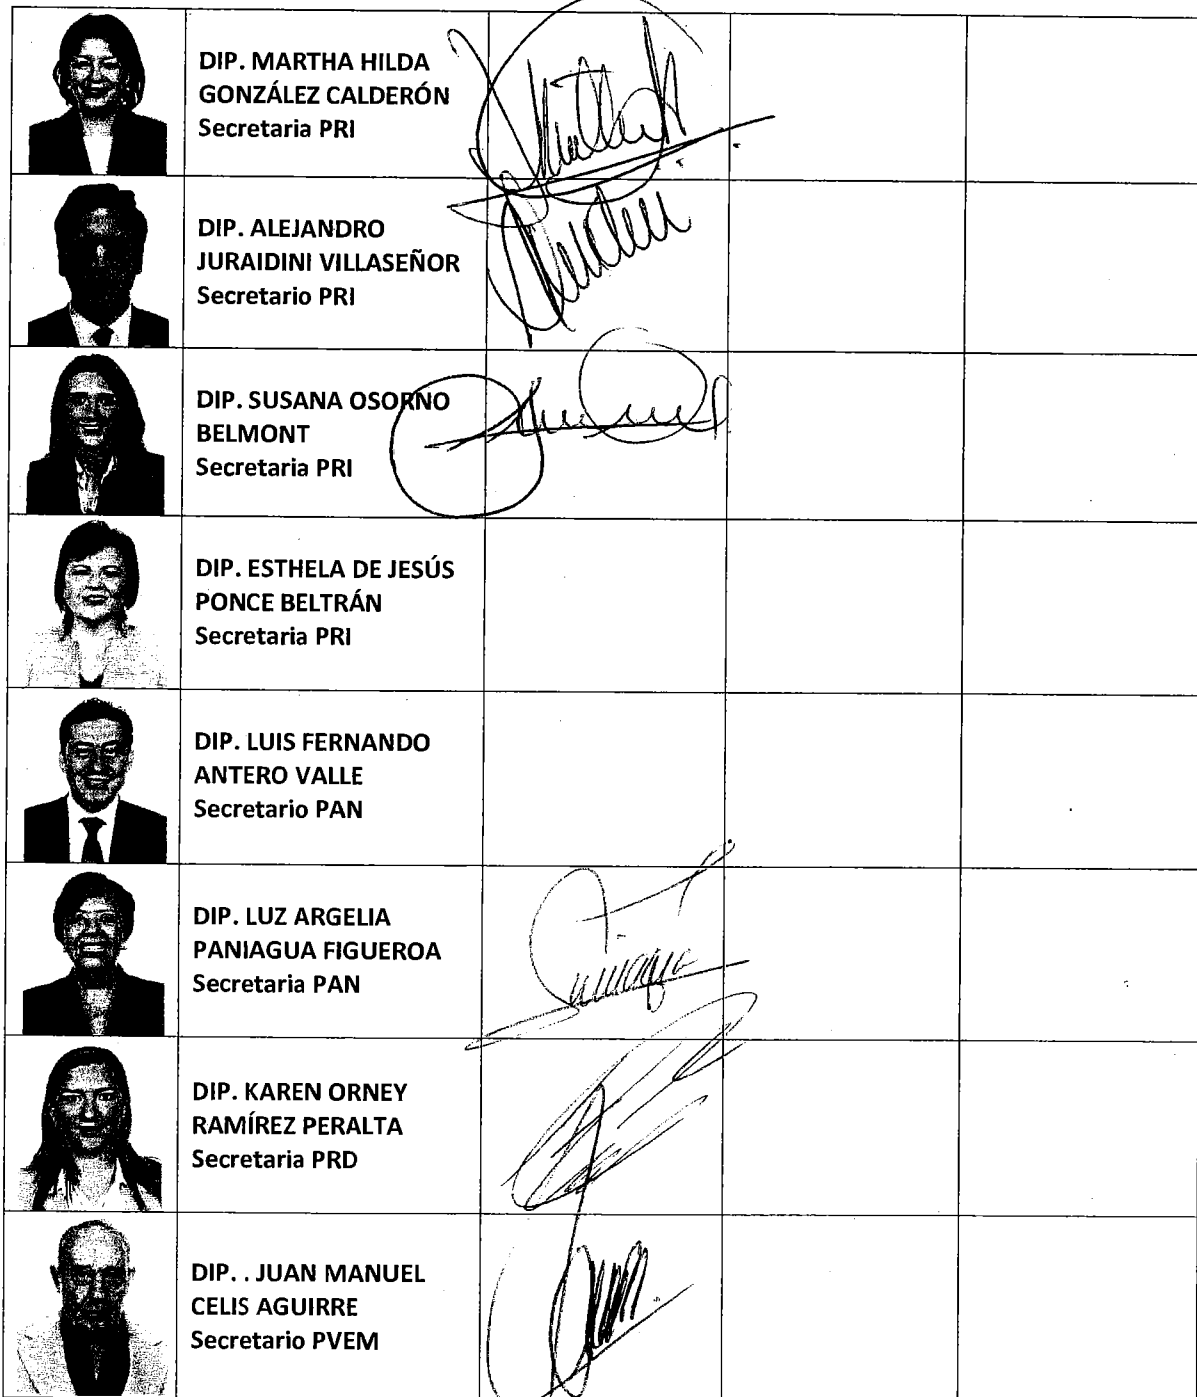 DIP. MARTHA HILDA
GONZÁLEZ CALDERÓN
Secretaria PRI
DIP. ALEJANDRO
JURAIDINI VILLASEÑOR
Secretario PRI
DIP. SUSANA OSORNO
BELMONT
Secretaria PRI
DIP. ESTHELA DE JESÚS
PONCE BELTRÁN
Secretaria PRI
DIP. LUIS FERNANDO
ANTERO VALLE
Secretario PAN
DIP. LUZ ARGELIA
PANIAGUA FIGUEROA
Secretaria PAN
DIP. KAREN ORNEY
RAMÍREZ PERALTA
Secretaria PRD
DIP. . JUAN MANUEL
CELIS AGUIRRE
Secretario PVEM